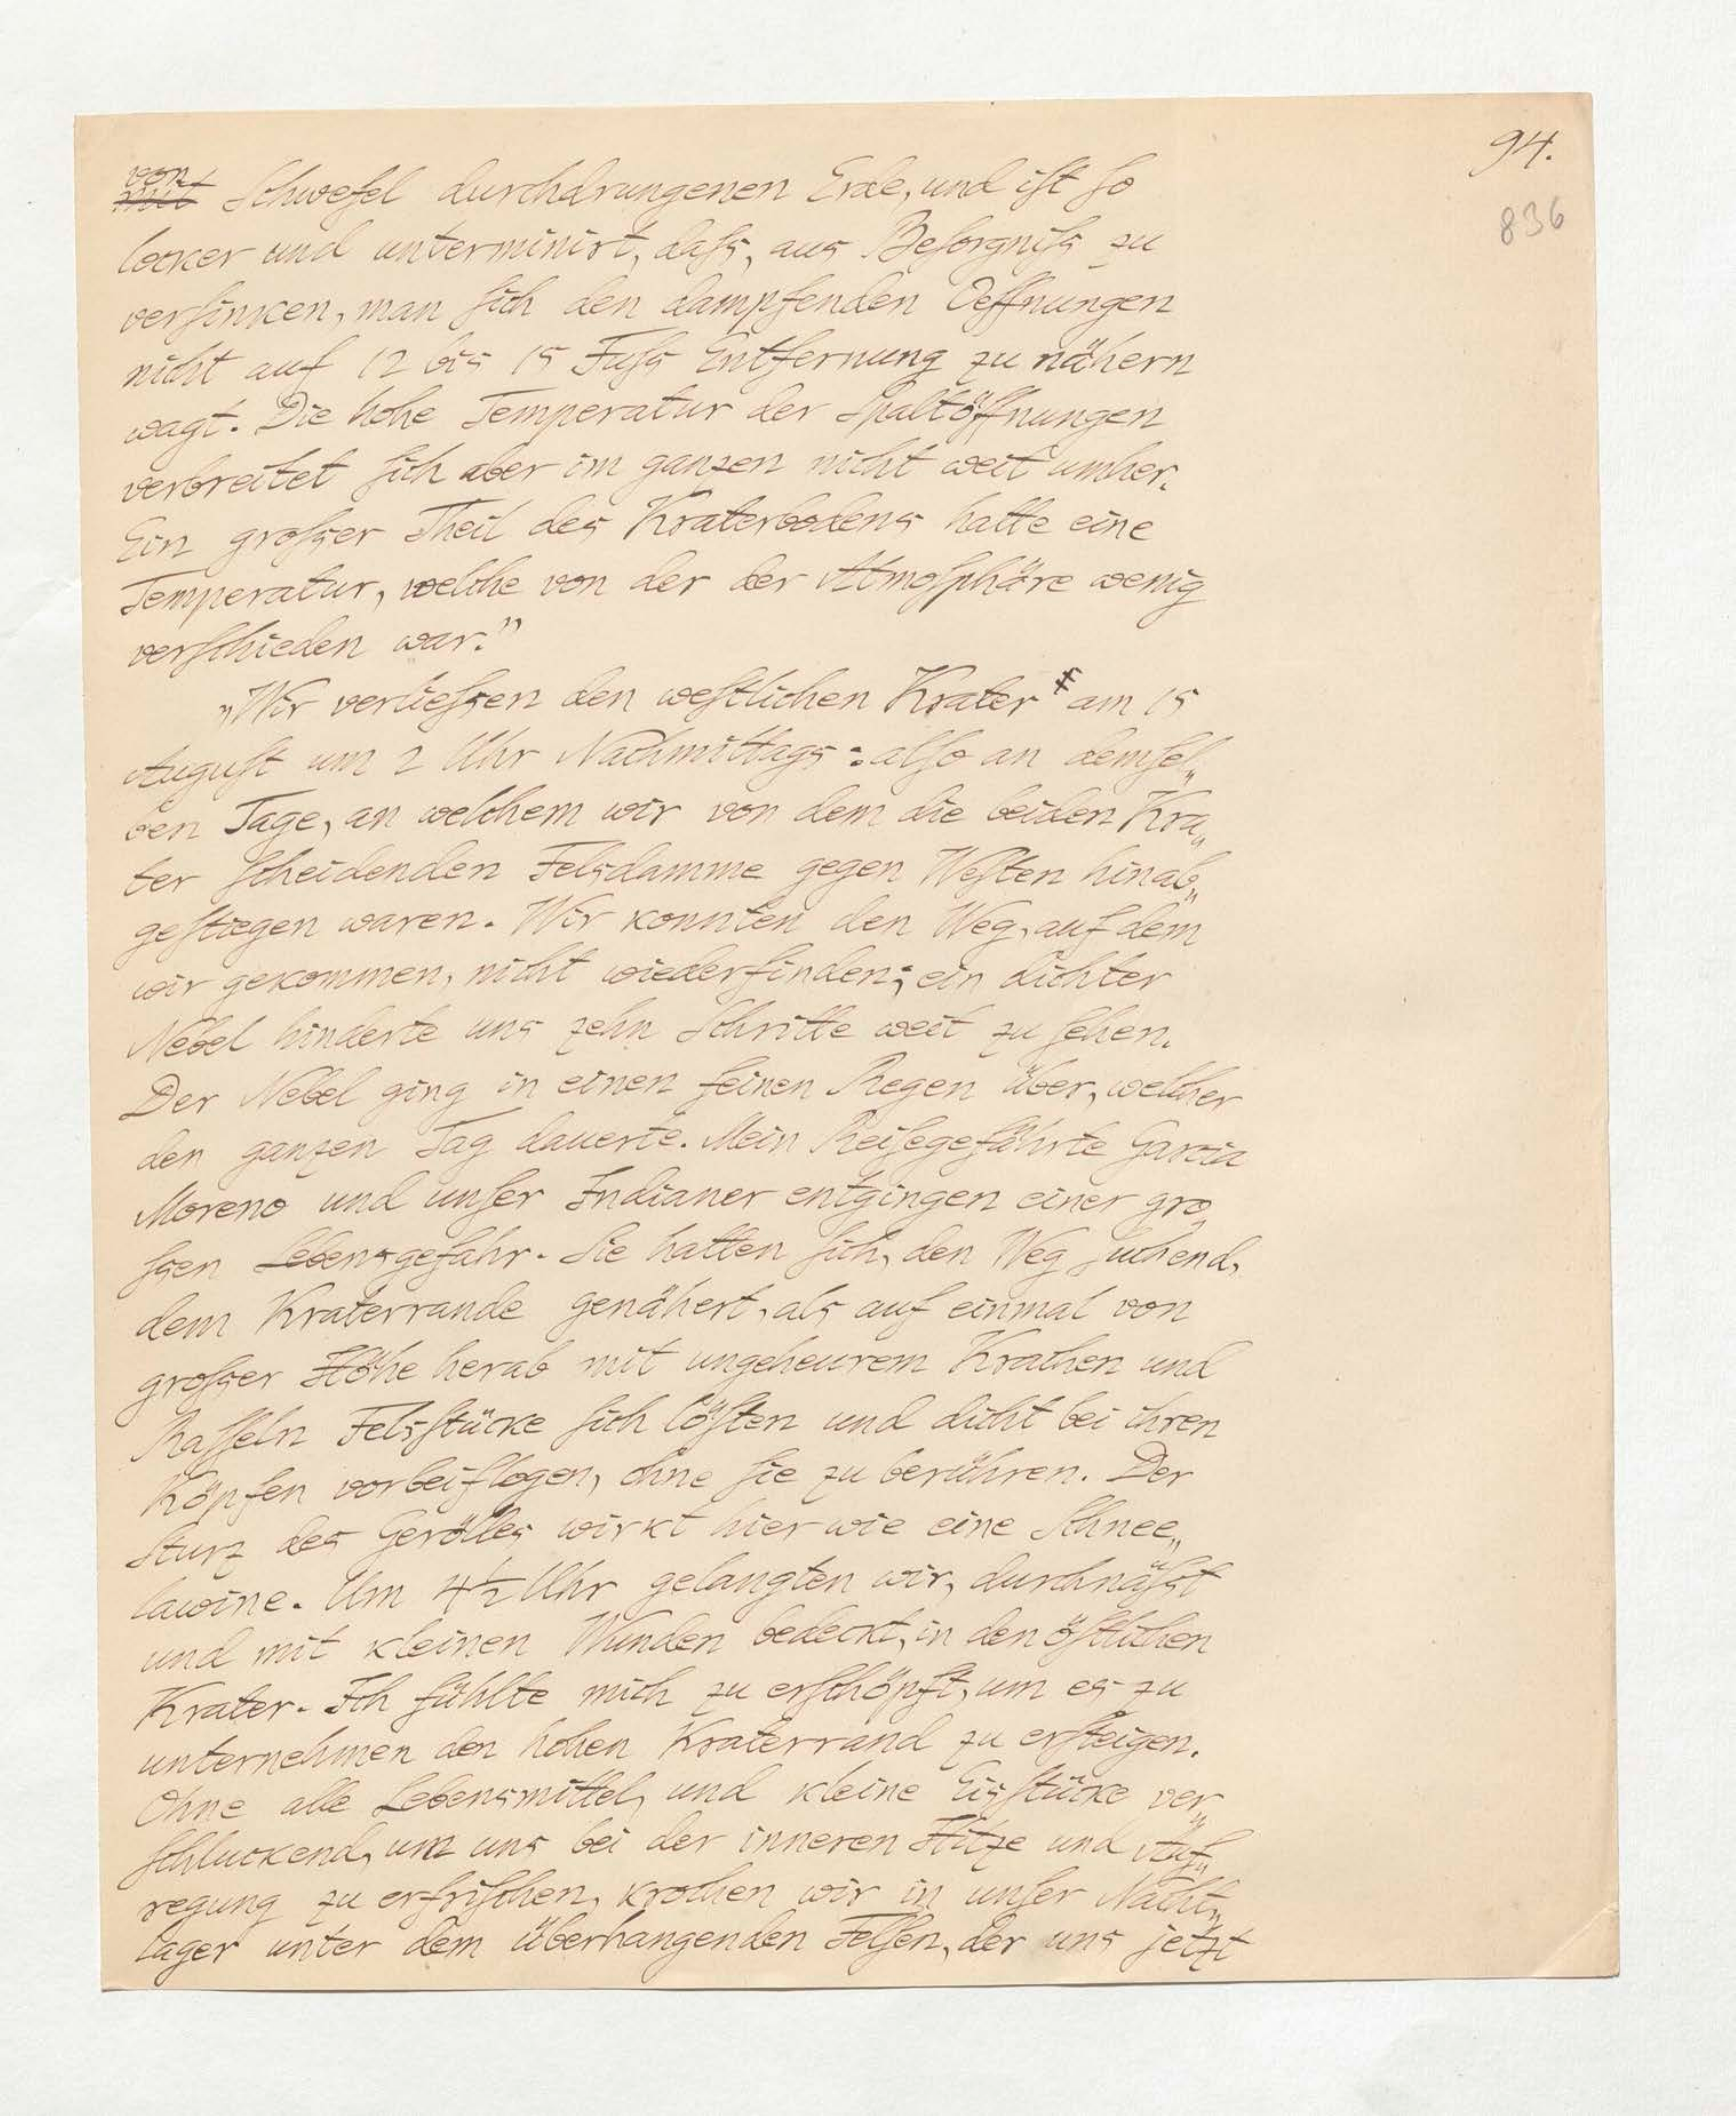 94.
836
von
mit Schwefel durchdrungenen Erde, und ist so
locker und unterminirt, dass, aus Besorgniss zu
versinken, man sich den dampfenden Oeffnungen
nicht auf 12 bis 15 Fuss Entfernung zu nähern
wagt. Die hohe Temperatur der Spaltöffnungen
verbreitet sich aber im ganzen nicht weit umher.
Ein grosser Theil des Kraterbodens hatte eine
Temperatur, welche von der der Atmosphäre wenig
verschieden war."
„Wir verliessen den westlichen Krater* am 15
August um 2 Uhr Nachmittags: also an demsel„
ben Tage, an welchem wir von dem die beiden Kra„
ter scheidenden Felsdamme gegen Westen hinab„
gestiegen waren. Wir konnten den Weg, auf dem
wir gekommen, nicht wiederfinden; ein dichter
Nebel hinderte uns zehn Schritte weit zu sehen.
Der Nebel ging in einen feinen Regen über, welcher
den ganzen Tag dauerte. Mein Reisegefährte Garcia
Moreno und unser Indianer entgingen einer gro„
ssen Lebensgefahr. Sie hatten sich, den Weg suchend,
dem Kraterrande genähert, als auf einmal von
grosser Höhe herab mit ungeheurem Krachen und
Rasseln Felsstücke sich lösten und dicht bei ihren
Köpfen vorbeiflogen, ohne sie zu berühren. Der
Sturz des Gerölles wirkt hier wie eine Schnee„
lawine. Um 4½ Uhr gelangten wir, durchnässt
und mit kleinen Wunden bedeckt, in den östlichen
Krater. Ich fühlte mich zu erschöpft, um es zu
unternehmen den hohen Kraterrand zu ersteigen.
Ohne alle Lebensmittel, und kleine Eisstücke ver„
schluckend, um uns bei der inneren Hitze und Auf„
regung zu erfrischen, krochen wir in unser Nacht„
lager unter dem überhangenden Felsen, der uns jetzt